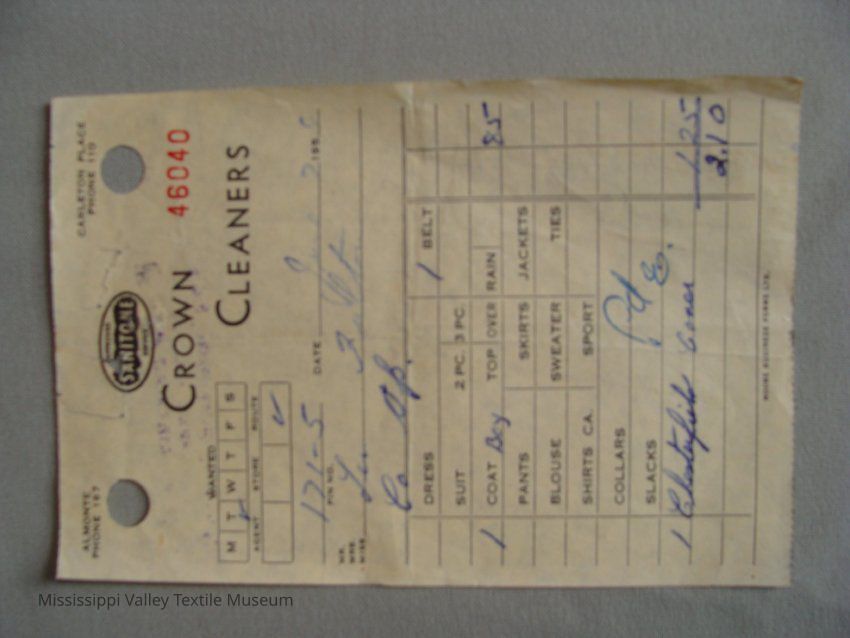 ALMONTE
PHONE 167
SANITONE
SERVICE
CARLETON PLACE
PHONE 110
46040
CROWN
CLEANERS
WANTED
M T W T F S
AGENT STORE ROUTE
171-5
PIN NO.
DATE 195
MR.
MRS.
MISS
DRESS 1 BELT
SUIT 2 PC. 3 PC.
1 COAT Boy TOP OVER RAIN 85
PANTS SKIRTS JACKETS
BLOUSE SWEATER TIES
SHIRTS CA. SPORT
COLLARS
SLACKS
1 Chesterfield Cover 1.25
2.10
MOORE BUSINESS FORMS LTD.
Mississippi Valley Textile Museum